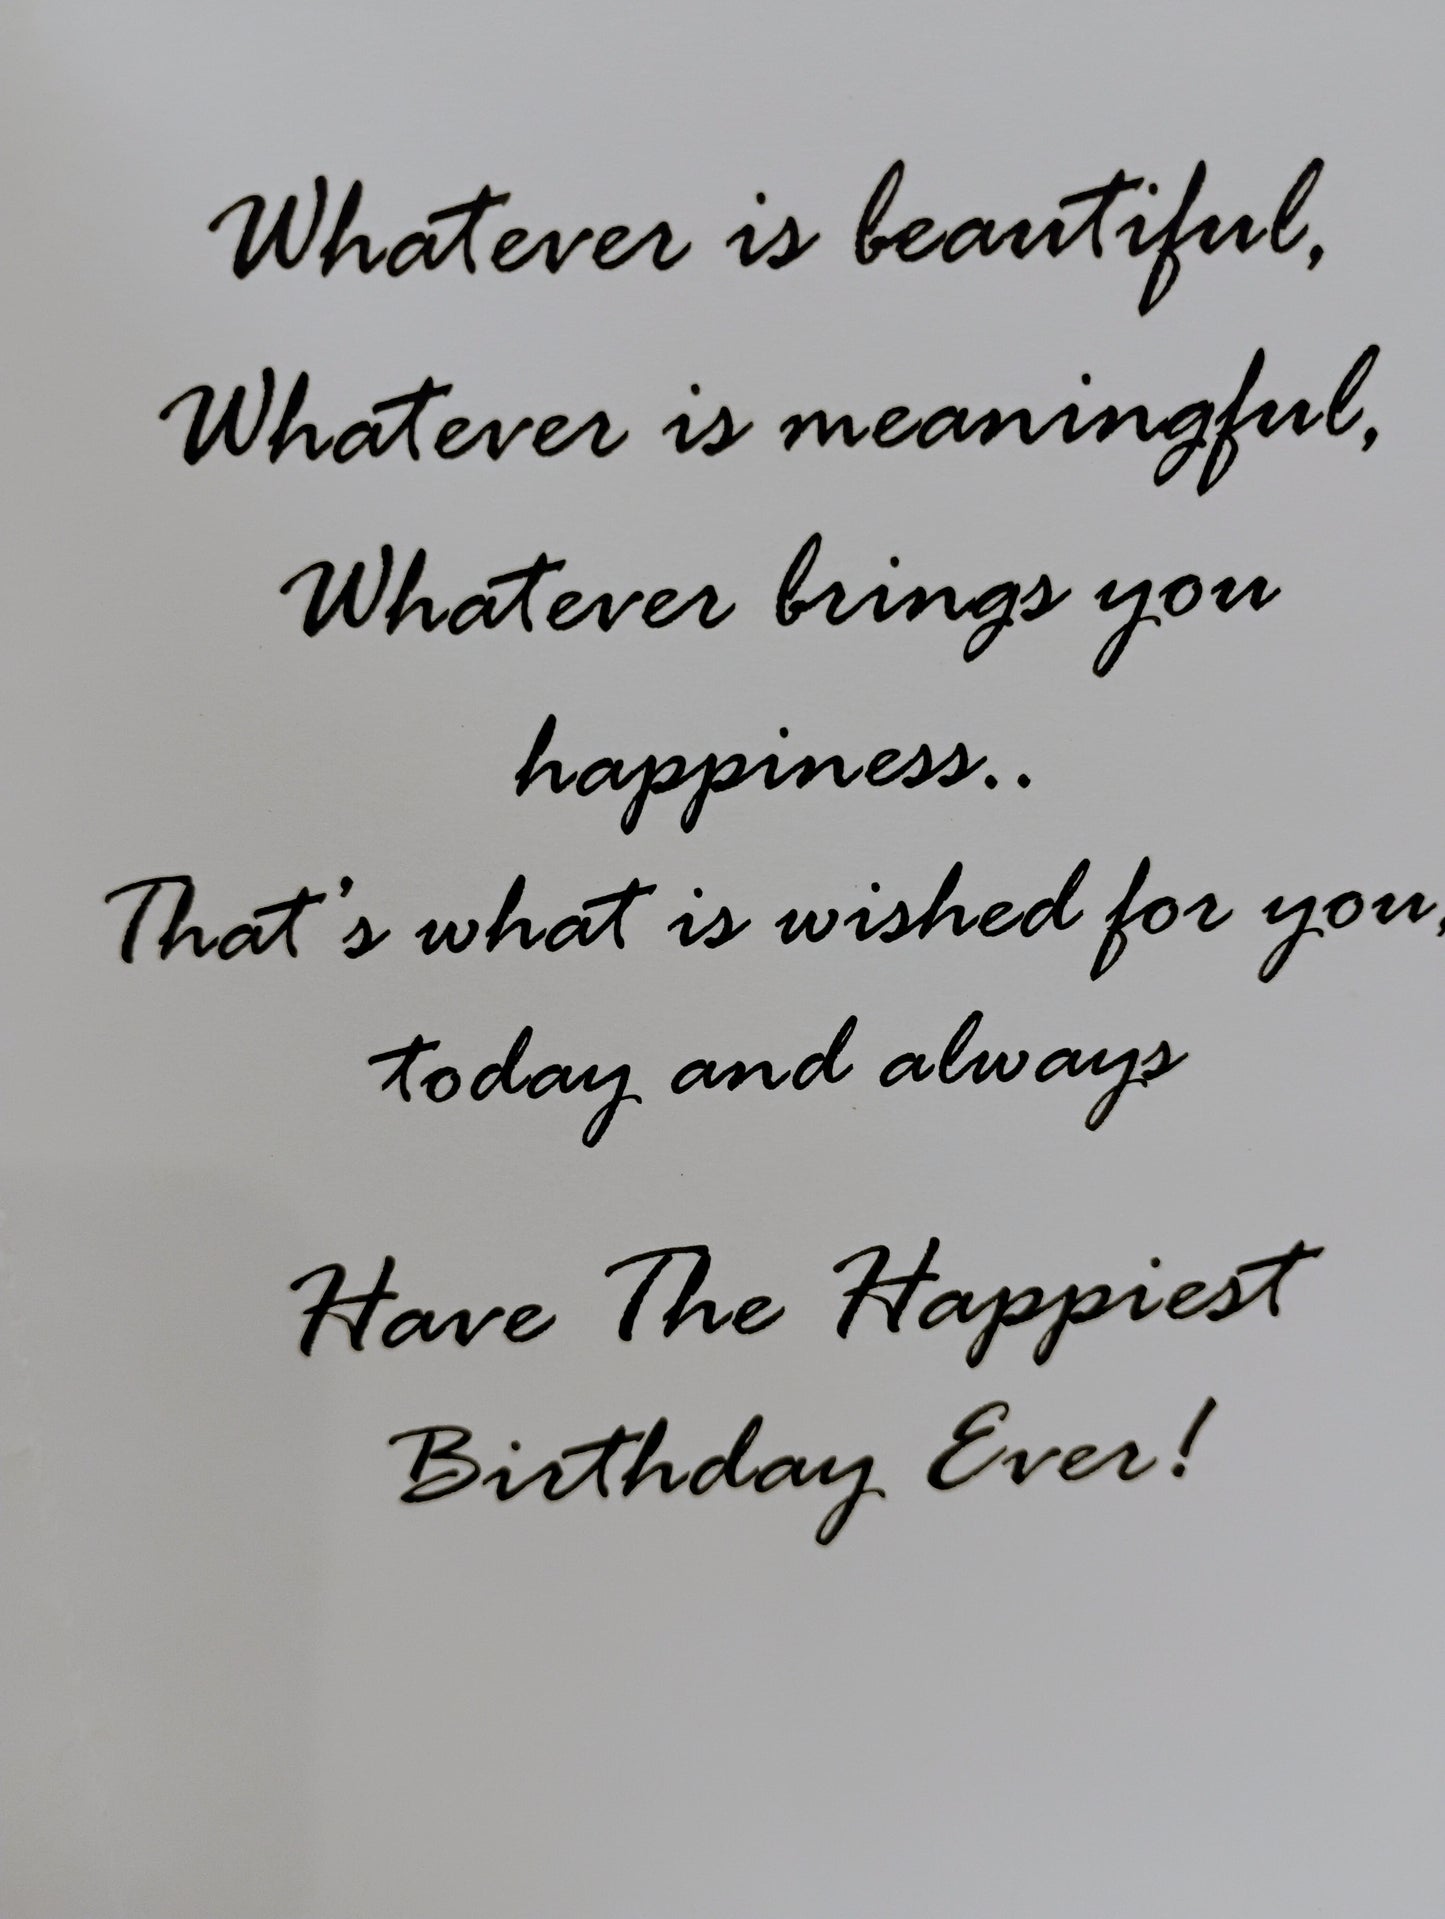 Whatever is beautiful,
Whatever is meaningful,
Whatever brings you
happiness..
That's what is wished for you,
today and always
Have The Happiest
Birthday Ever!